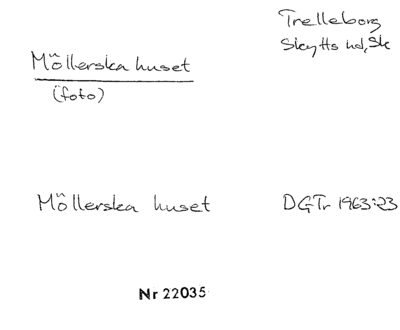 Trelleborg
Skytts hd, Sk
Möllerska huset
(foto)
Möllerska huset
DGTr 1963:23
Nr 22035